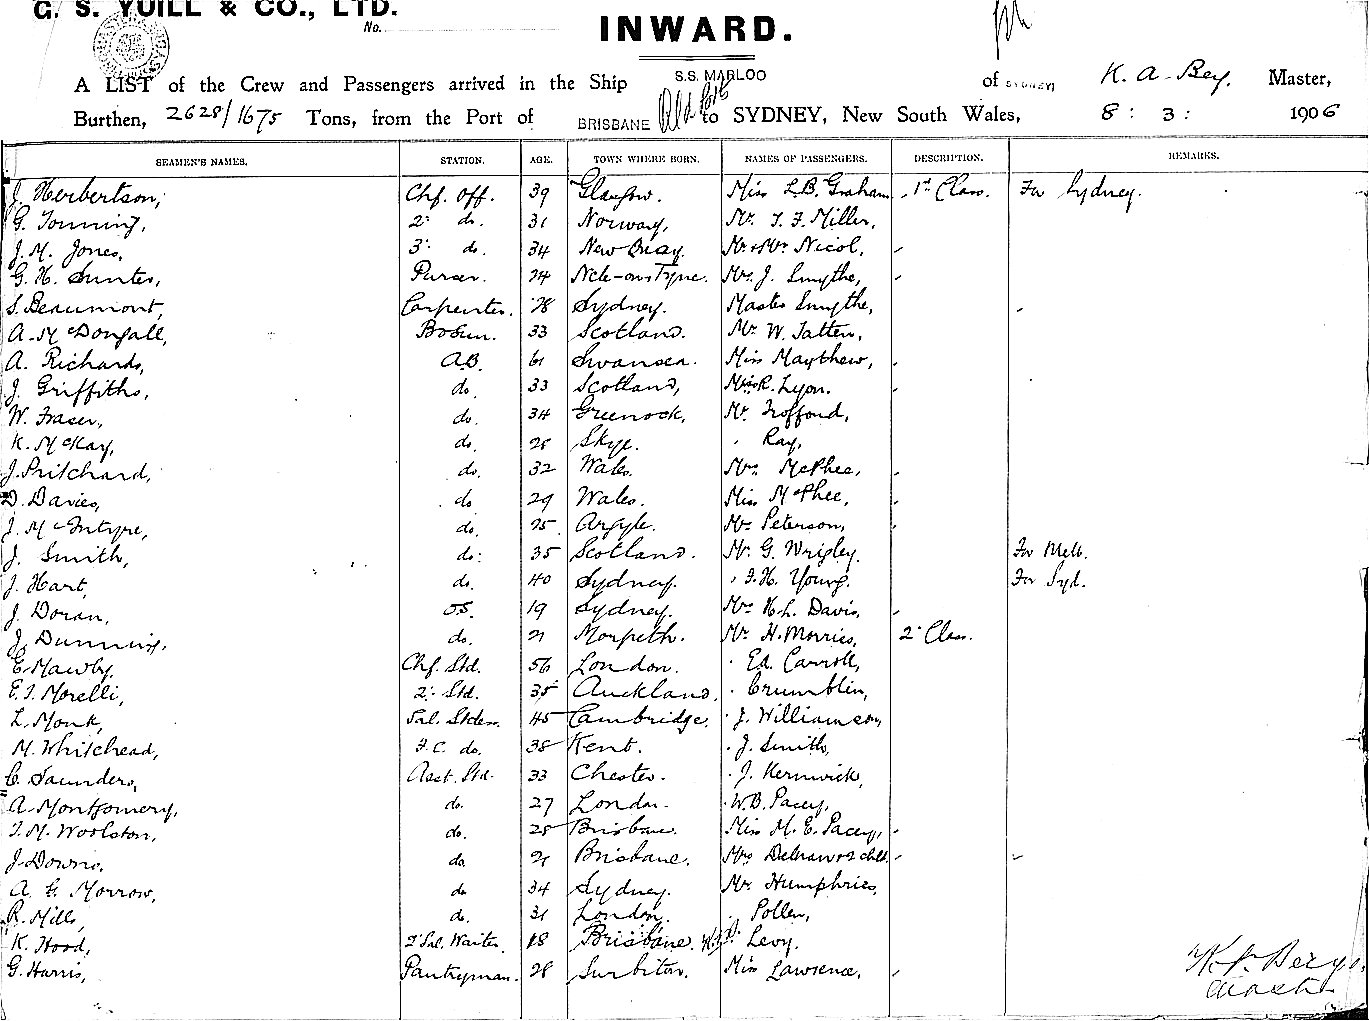 G. S. YUILL & CO., LTD.
No.
INWARD.
A LIST of the Crew and Passengers arrived in the Ship S.S. MARLOO of SYDNEY K. A. Bey. Master,
Burthen, 2628/1675 Tons, from the Port of BRISBANE to SYDNEY, New South Wales, 8 : 3 : 1906
SEAMEN'S NAMES. STATION. AGE. TOWN WHERE BORN. NAMES OF PASSENGERS. DESCRIPTION. REMARKS.
J. Herbertson, Chf. Off. 39 Glasgow. Miss L.B. Graham 1st Class. For Sydney.
G. Tonning, 2nd do. 31 Norway, Mr. T. F. Miller,
J. M. Jones, 3rd do. 34 New Quay. Mr & Mrs Nicol,
G. H. Sunter, Purser. 24 Ncle-on-Tyne. Mrs J. Smythe,
S. Beaumont, Carpenter. 28 Sydney. Master Smythe,
A. McDongall, Bosun. 33 Scotland. Mr W. Tatten,
A. Richards, A.B. 61 Swansea. Miss Maythew,
J. Griffiths, do. 33 Scotland, R. Lyon.
W. Fraser, do. 34 Greenock. Mr. Trofford,
K. McKay, do. 28 Skye. " Ray,
J. Pritchard, do. 32 Wales. Mrs McPhee,
D. Davies, do. 29 Wales. Miss McPhee,
J. McIntyre, do. 25 Argyle. Mrs Peterson,
J. Smith, do. 35 Scotland. Mr. G. Wrigley. For Melb.
J. Hart, do. 40 Sydney. " F. H. Young. For Syd.
J. Doran, O.S. 19 Sydney. Mrs H. L. Davis,
J. Dunning, do. 21 Morpeth. Mr H. Morries, 2nd Class.
E. Mawby. Chf. Std. 56 London. " Ed. Carroll,
E. J. Morelli, 2nd Std. 35 Auckland. " Crumblin,
L. Monk, Sal. Stdess. 45 Cambridge. " J. Williamson,
M. Whitehead, F.C. do. 38 Kent. " J. Smith,
C. Saunders, Asst. Std. 33 Chester. " J. Kerswick,
A. Montgomery, do. 27 London. " W. B. Pacey,
T. M. Woolston, do. 28 Brisbane. Miss M. E. Pacey,
J. Downs. do. 21 Brisbane. Mrs & 2 chld.
A. E. Morrow, do 34 Sydney. Mr. Humphries,
R. Mills, do. 31 London. " Pollen,
K. Hood, 2nd Sal. Waiter. 18 Brisbane. Levy.
G. Harris, Pantryman. 28 Surbiton. Miss Lawrence,
Master